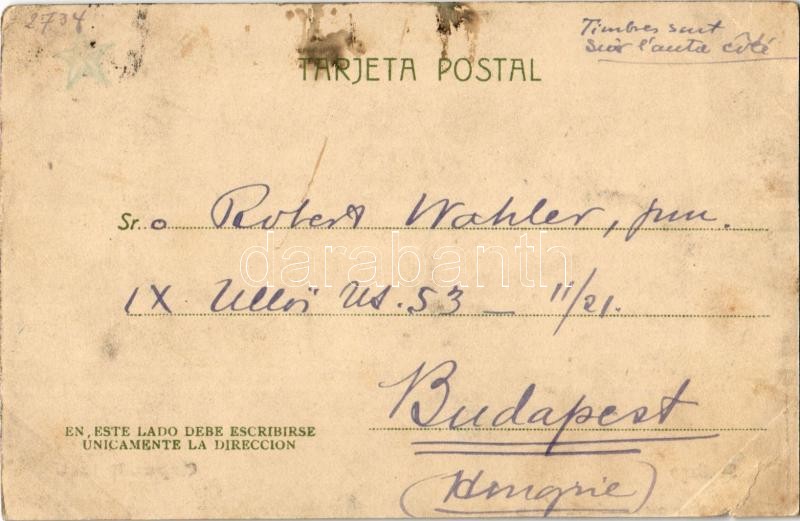 2734
Timbres sont
sur l'autre côté
TARJETA POSTAL
Sr. o Robert Wohler, jun.
darabanth
IX Üllői Ut. 53 — II/21.
Budapest
EN ESTE LADO DEBE ESCRIBIRSE
ÚNICAMENTE LA DIRECCION
(Hongrie)